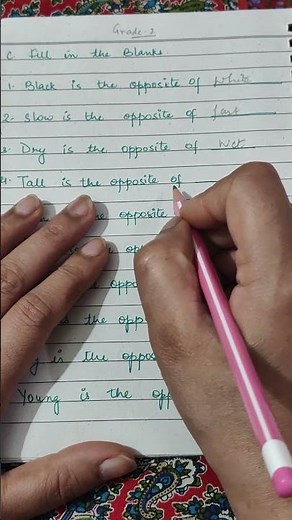 Grade-2
C. Fill in the Blanks
1. Black is the opposite of White
2. Slow is the opposite of fast
3. Dry is the opposite of Wet
4. Tall is the opposite of
is the opposite
the
the
is the opp
is the oppos
Young is the opp